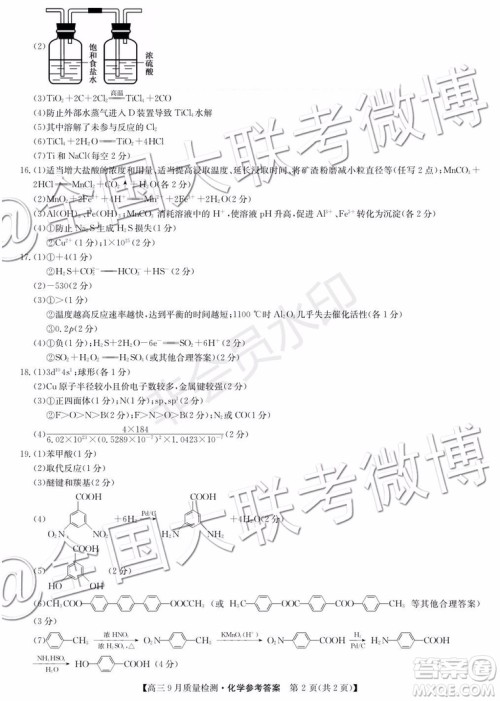 (2)
饱和食盐水
浓硫酸
(3)TiO₂+2C+2Cl₂ 高温 TiCl₄+2CO
(4)防止外部水蒸气进入D装置导致TiCl₄水解
(5)其中溶解了未参与反应的Cl₂
(6)TiCl₄+2H₂O══TiO₂+4HCl
(7)Ti和NaCl(每空2分)
16.(1)适当增大盐酸的浓度和用量,适当提高浸取温度,延长浸取时间,将矿渣粉磨减小粒直径等(任写2点);MnCO₃+
2HCl══MnCl₂+CO₂↑+H₂O(各2分)
(2)MnO₂+2Fe²⁺+4H⁺══Mn²⁺+2Fe³⁺+2H₂O(2分)
(3)Al(OH)₃、Fe(OH)₃;MnCO₃消耗溶液中的H⁺,使溶液pH升高,促进Al³⁺、Fe³⁺转化为沉淀(各2分)
(4)①防止Na₂S生成H₂S损失(1分)
②Cu²⁺(1分);1×10²¹(2分)
17.(1)①+4(1分)
②H₂S+CO₃²⁻══HCO₃⁻+HS⁻(2分)
(2)-530(2分)
(3)①>(1分)
②温度越高反应速率越快,达到平衡的时间越短;1100 ℃时Al₂O₃几乎失去催化活性(各1分)
③0.2p(2分)
(4)①负(1分);SO₂+2H₂O-2e⁻══SO₄²⁻+4H⁺(2分)
②SO₃+H₂O══H₂SO₄(或其他合理答案)(2分)
18.(1)3d¹⁰4s¹;球形(各1分)
(2)Cu原子半径较小且价电子数较多,金属键较强(2分)
(3)①正四面体(1分);sp,sp³(2分)
②F>O>N>B(或F>N>O>B)(2分)
(4)4×184
6.02×10²³×(0.5289×10⁻⁷)²×1.0423×10⁻⁷(2分)
19.(1)苯甲酸(1分)
(2)取代反应(2分)
(3)醚键和羧基(2分)
COOH
COOH
(4) +6H₂ Pd/C +4H₂O(2分)
O₂N NO₂ H₂N NH₂
COOH
(5) (2分)
HO OH
(6)CH₃COO OOCCH₃(或 H₃C OOC COO CH₃ 等其他合理答案)
(3分)
(7) CH₃ 浓HNO₃ 浓H₂SO₄,△ O₂N CH₃ KMnO₄(H⁺) O₂N COOH H₂ Pd/C H₂N COOH
H₂O HO COOH(4分)
【高三9月质量检测·化学参考答案 第2页(共2页)】
@全国大联考微博
@全国大联考微博
非会员水印
答案圈